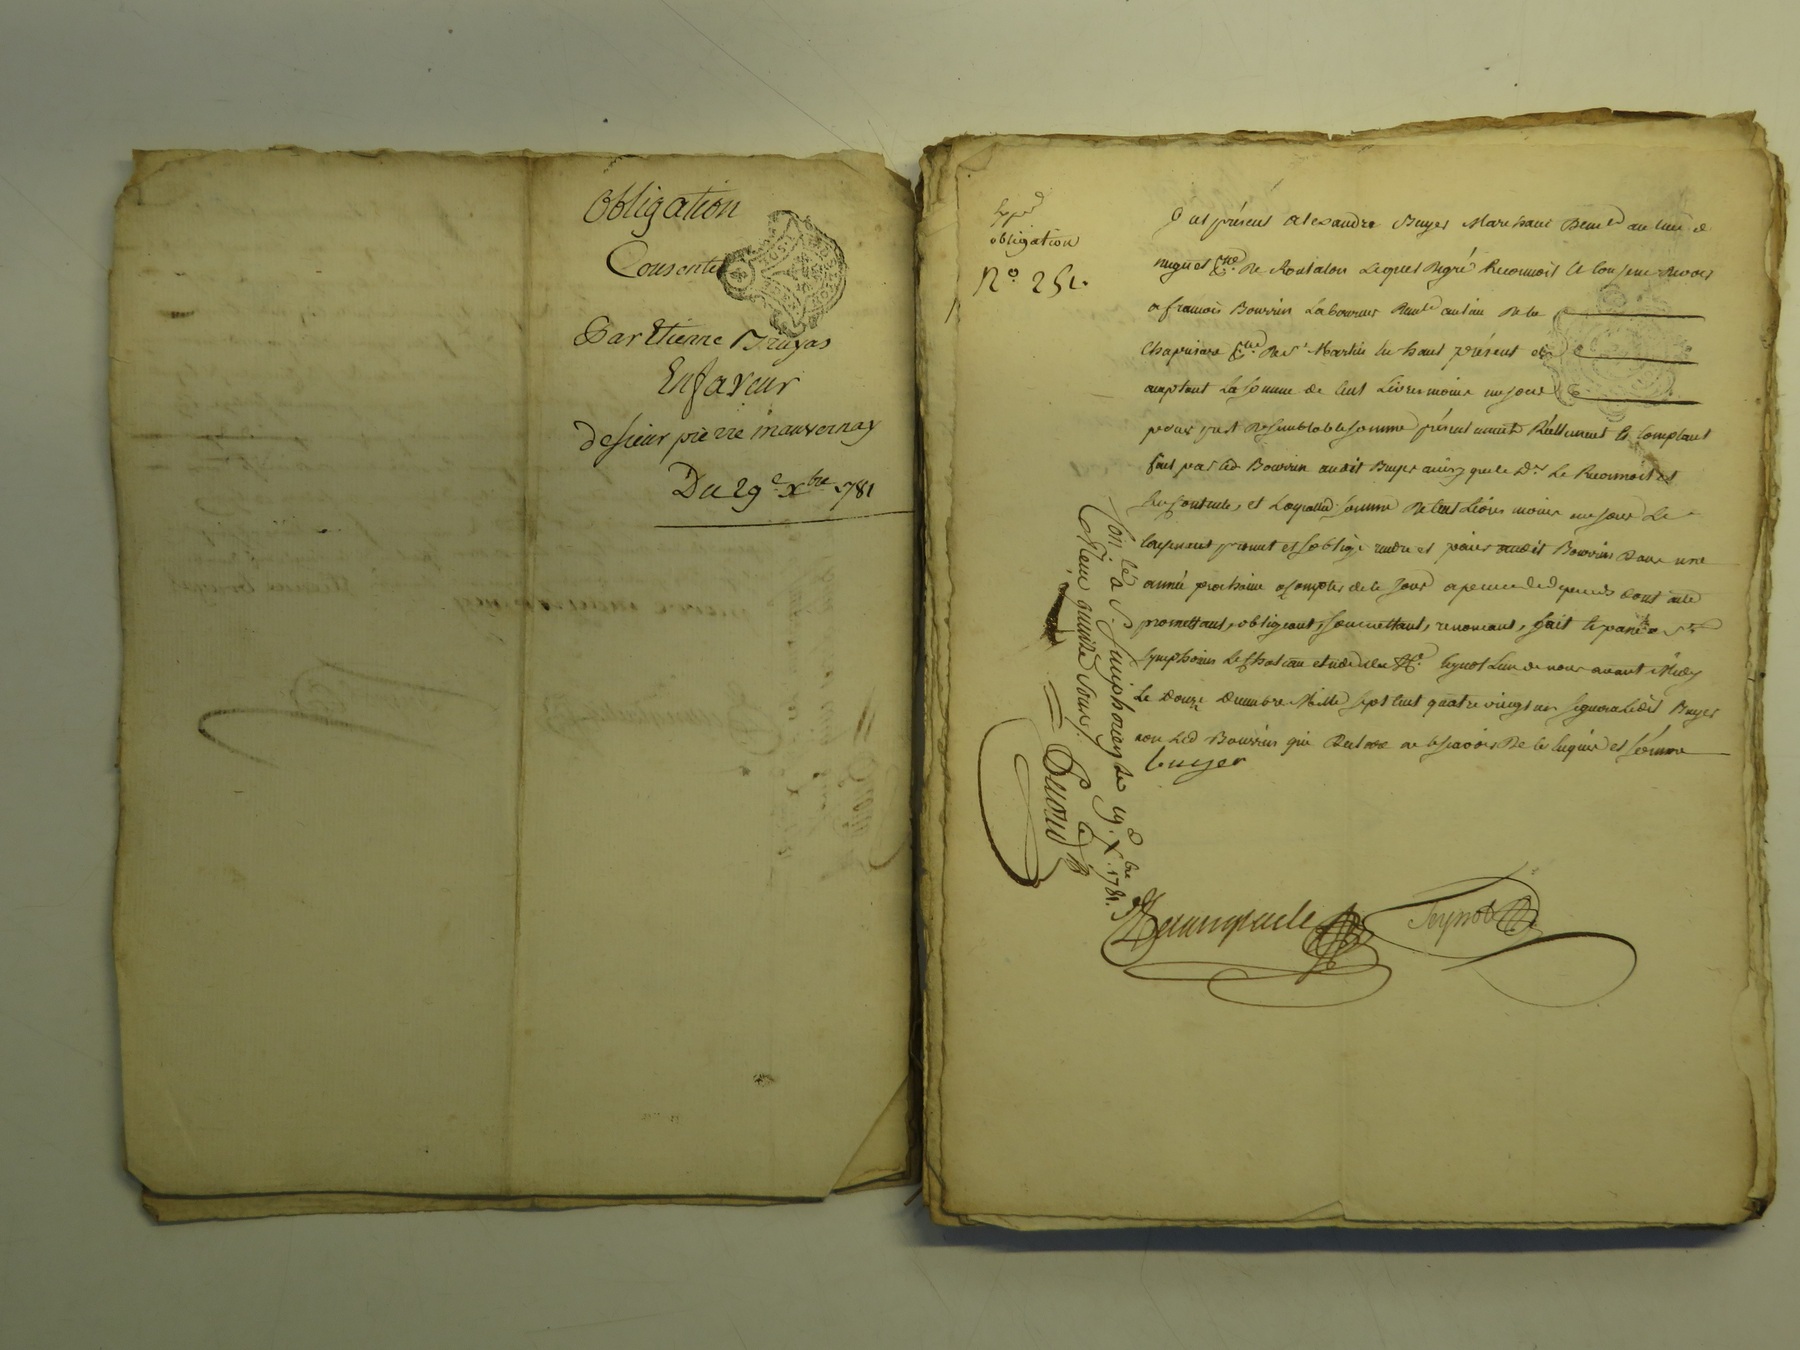 Obligation
Consentie
Par Etienne Bruyas
En faveur
de sieur pierre mauvernay
Du 29e Xbre 1781
Exped
obligation
N° 251.
fut présent alexandre Buyer Marchand Demt au lieu de
nugues psse De Rontalon Lequel De gré Reconnoit et Confesse devoir
a francois Bourrin Laboureur Demt au lieu De la
Chapuisere psse De St Martin En haut présent et
acceptant La somme de Cent Livres moins un sous
pour prest De semblable somme présentement Réellement et Comptant
fait par led Bourrin audit Buyer ainsy que le Dr Le Reconnoit et
sen Contente, et Laquelle somme De Cent Livres moins un sous Le
Confessant promet et soblige rendre et paier audit Bourrin Dans une
année prochaine a Compter de ce Jour a peine de dépens Dont acte
promettant, obligeant, soumettant, renoncant, fait et passé a St
symphorien Le Chateau etude de Me teynot L'un de nous avant Midy
Le Douze Decembre Mille sept Cent quatre vingt un signera Ledit Buyer
non Led Bourrin qui Declaré ne le scavoir De ce Enquis et sommé
buyer
Con.lé a St. Simphorien le 19. Xbre 1781.
Reçu quinze sous.